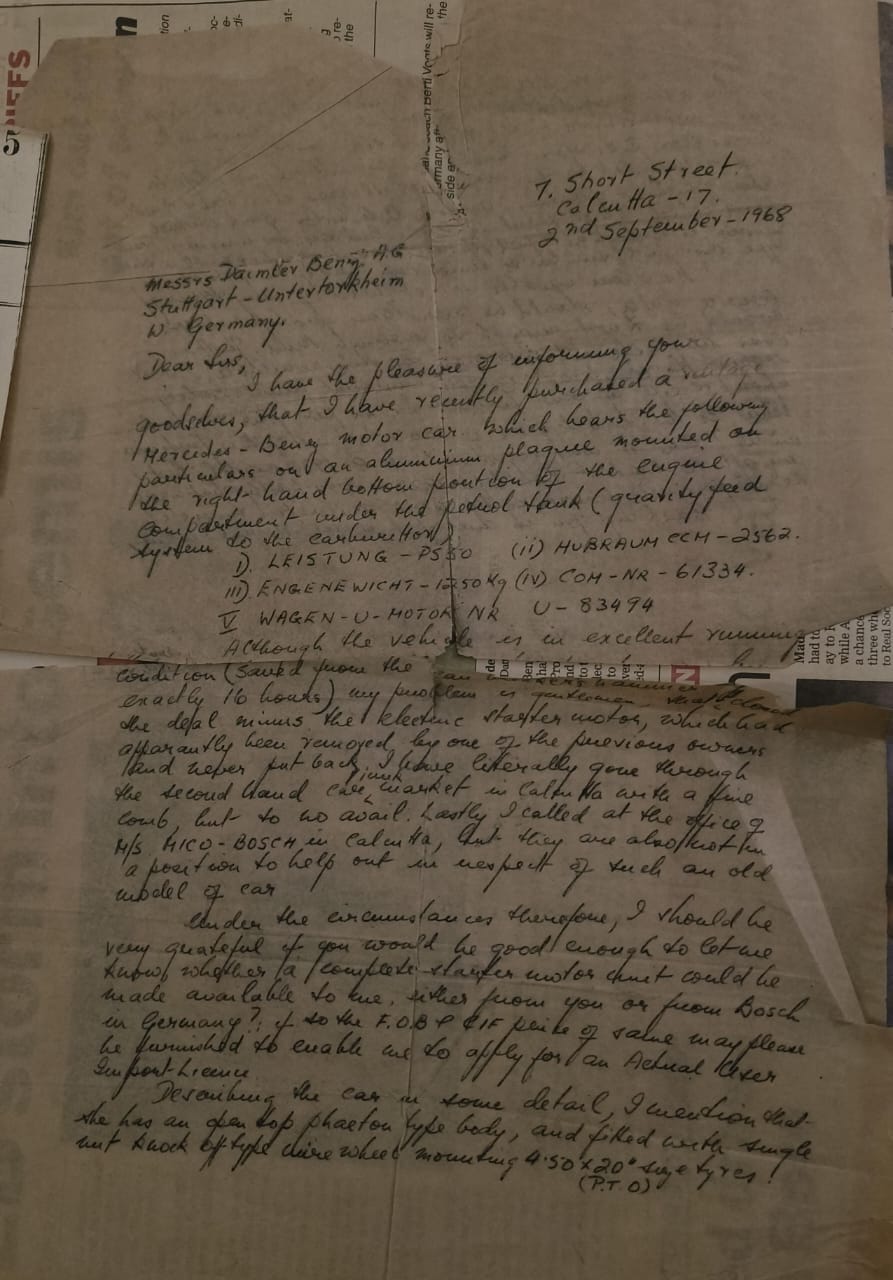 7. Short Street.
Calcutta - 17.
2nd September - 1968
Messrs Daimler Benz AG
Stuttgart - Untertorkheim
W. Germany.
Dear Sirs,
I have the pleasure of informing your
goodselves, that I have recently purchased a vintage
Mercedes - Benz motor car which bears the following
particulars on an aluminium plaque mounted on
the right-hand bottom portion of the engine
compartment under the petrol tank (gravity feed
system to the carburettor)
I). LEISTUNG - PS50 (ii) HUBRAUM CCM - 2562.
III) ENGENEWICHT - 1250 Kg (IV) COM - NR - 61334.
V WAGEN - U - MOTOR NR U - 83494
Although the vehicle is in excellent running
condition (saved from the hammer by
exactly 16 hours) my problem is gentlemen, that I closed
the deal minus the electric starter motor, which had
apparantly been removed by one of the previous owners
and never put back. I have literally gone through
the second hand car junk market in Calcutta with a fine
comb, but to no avail. Lastly I called at the office of
M/S MICO - BOSCH in Calcutta, but they are also not in
a position to help out in respect of such an old
model of car
Under the circumstances therefore, I should be
very grateful if you would be good enough to let me
know, whether a complete starter motor unit could be
made available to me, either from you or from Bosch
in Germany?, if so the F.O.B & CIF price of same may please
be furnished to enable me to apply for an Actual User
Import Licence
Describing the car in some detail, I mention that
she has an open top phaeton type body, and fitted with single
nut knock off type wire wheel mounting 4.50 x 20" size tyres!
(P.T.O)
5
IEFS
n
N